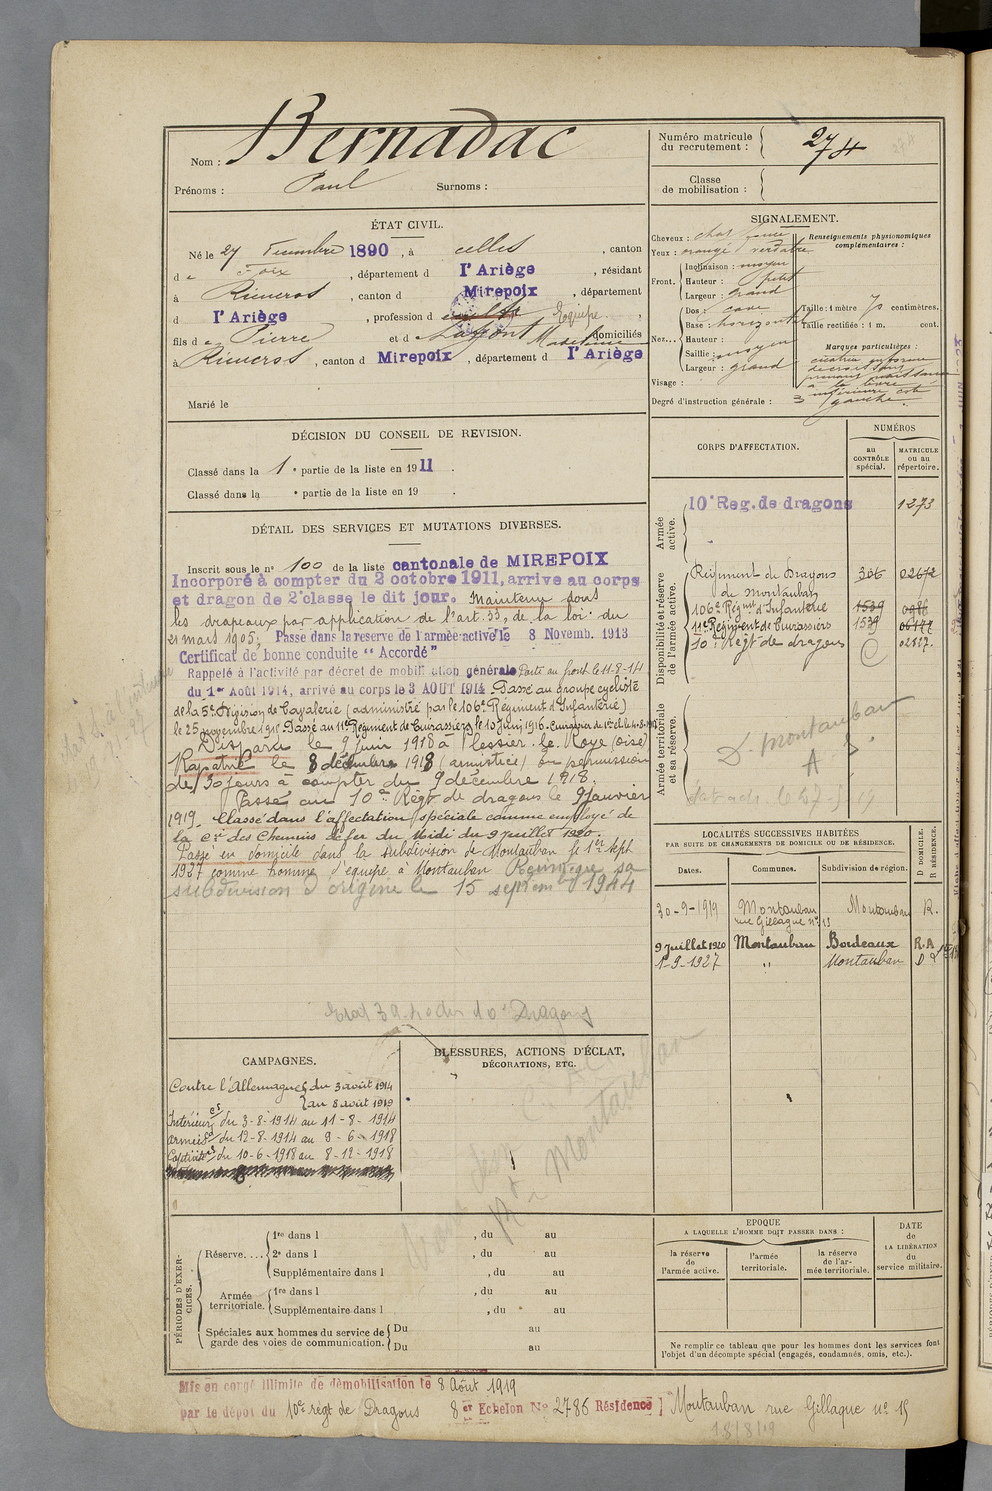 Nom : Bernadac
Prénoms : Paul Surnoms :
Numéro matricule du recrutement : 274
Classe de mobilisation :
ÉTAT CIVIL.
Né le 27 Décembre 1890, à Celles, canton
de Foix, département d l'Ariège, résidant
à Rieucros, canton d Mirepoix, département
d l'Ariège, profession d Equipe
fils de Pierre et de Lafont Madeleine domiciliés
à Rieucros, canton d Mirepoix, département d l'Ariège
Marié le
SIGNALEMENT.
Cheveux : chat foncé
Yeux : orangé verdâtre
Front. Inclinaison : moyen
Hauteur : petit
Largeur : grand
Nez... Dos : cave
Base : horizontal
Hauteur :
Saillie : moyen
Largeur : grand
Visage :
Degré d'instruction générale : 3
Renseignements physionomiques complémentaires :
Taille : 1 mètre 70 centimètres.
Taille rectifiée : 1 m. cent.
Marques particulières :
cicatrice
à la lèvre
inférieure côté
gauche.
DÉCISION DU CONSEIL DE REVISION.
Classé dans la 1e partie de la liste en 1911.
Classé dans la e partie de la liste en 19 .
CORPS D'AFFECTATION.
NUMÉROS
au CONTRÔLE spécial.
MATRICULE ou au répertoire.
Armée active.
10e Reg. de dragons 1273
Disponibilité et réserve de l'armée active.
Régiment de Dragons de Montauban 306 02672
106e Régmt d'Infanterie 1539 0986
11e Régiment de Cuirassiers 1539
10e Régt de dragons
Armée territoriale et sa réserve.
D. Montauban
A
DÉTAIL DES SERVICES ET MUTATIONS DIVERSES.
Inscrit sous le n° 100 de la liste cantonale de MIREPOIX
Incorporé à compter du 2 octobre 1911, arrive au corps
et dragon de 2e classe le dit jour. Maintenu sous
les drapeaux par application de l'art. 33, de la loi du
21 mars 1905; Passe dans la réserve de l'armée active le 8 Novemb. 1913
Certificat de bonne conduite "Accordé"
Rappelé à l'activité par décret de mobilisation générale Parti au front le 11-8-14
du 1er Août 1914, arrivé au corps le 3 AOUT 1914. Passé au groupe cycliste
de la 5e Division de Cavalerie (administré par le 106e Régiment d'Infanterie)
le 25 novembre 1915. Passé au 11e Régiment de Cuirassiers le 10 Juin 1916.
Disparu le 9 Juin 1918 à Plessier le Roye (Oise)
Rapatrié le 8 décembre 1918 (armistice) en permission
de 30 jours à compter du 9 décembre 1918.
Passé au 10e Régt de dragons le 9 Janvier
1919. Classé dans l'affectation spéciale comme employé de
la Cie des Chemins de fer du Midi du 9 juillet 1920.
Passé en domicile dans la subdivision de Montauban le 1er Sept.
1927 comme homme d'équipe à Montauban Réintègre sa
subdivision d'origine le 15 septembre 1944
LOCALITÉS SUCCESSIVES HABITÉES
PAR SUITE DE CHANGEMENTS DE DOMICILE OU DE RÉSIDENCE.
Dates. Communes. Subdivision de région. D DOMICILE. R RÉSIDENCE.
30-9-1919 Montauban rue Gillaque n° 15 Montauban R.
9 Juillet 1920 Montauban Bordeaux R.A
1-9-1927 " Montauban D
CAMPAGNES.
Contre l'Allemagne du 3 août 1914
au 8 août 1919
Intérieur du 3-8-1914 au 11-8-1914
armées du 12-8-1914 au 9-6-1918
Captivité du 10-6-1918 au 8-12-1918
BLESSURES, ACTIONS D'ÉCLAT,
DÉCORATIONS, ETC.
PÉRIODES D'EXERCICES.
Réserve....
1re dans l , du au
2e dans l , du au
Supplémentaire dans l , du au
Armée territoriale.
1re dans l , du au
Supplémentaire dans l , du au
Spéciales aux hommes du service de garde des voies de communication.
Du au
Du au
EPOQUE
A LAQUELLE L'HOMME DOIT PASSER DANS :
la réserve de l'armée active.
l'armée territoriale.
la réserve de l'armée territoriale.
DATE de LA LIBÉRATION du service militaire.
Ne remplir ce tableau que pour les hommes dont les services font
l'objet d'un décompte spécial (engagés, condamnés, omis, etc.).
Mis en congé illimité de démobilisation le 8 Août 1919
par le dépôt du 10e régt de Dragons 8er Echelon N° 2786 Résidence Montauban rue Gillaque n° 15